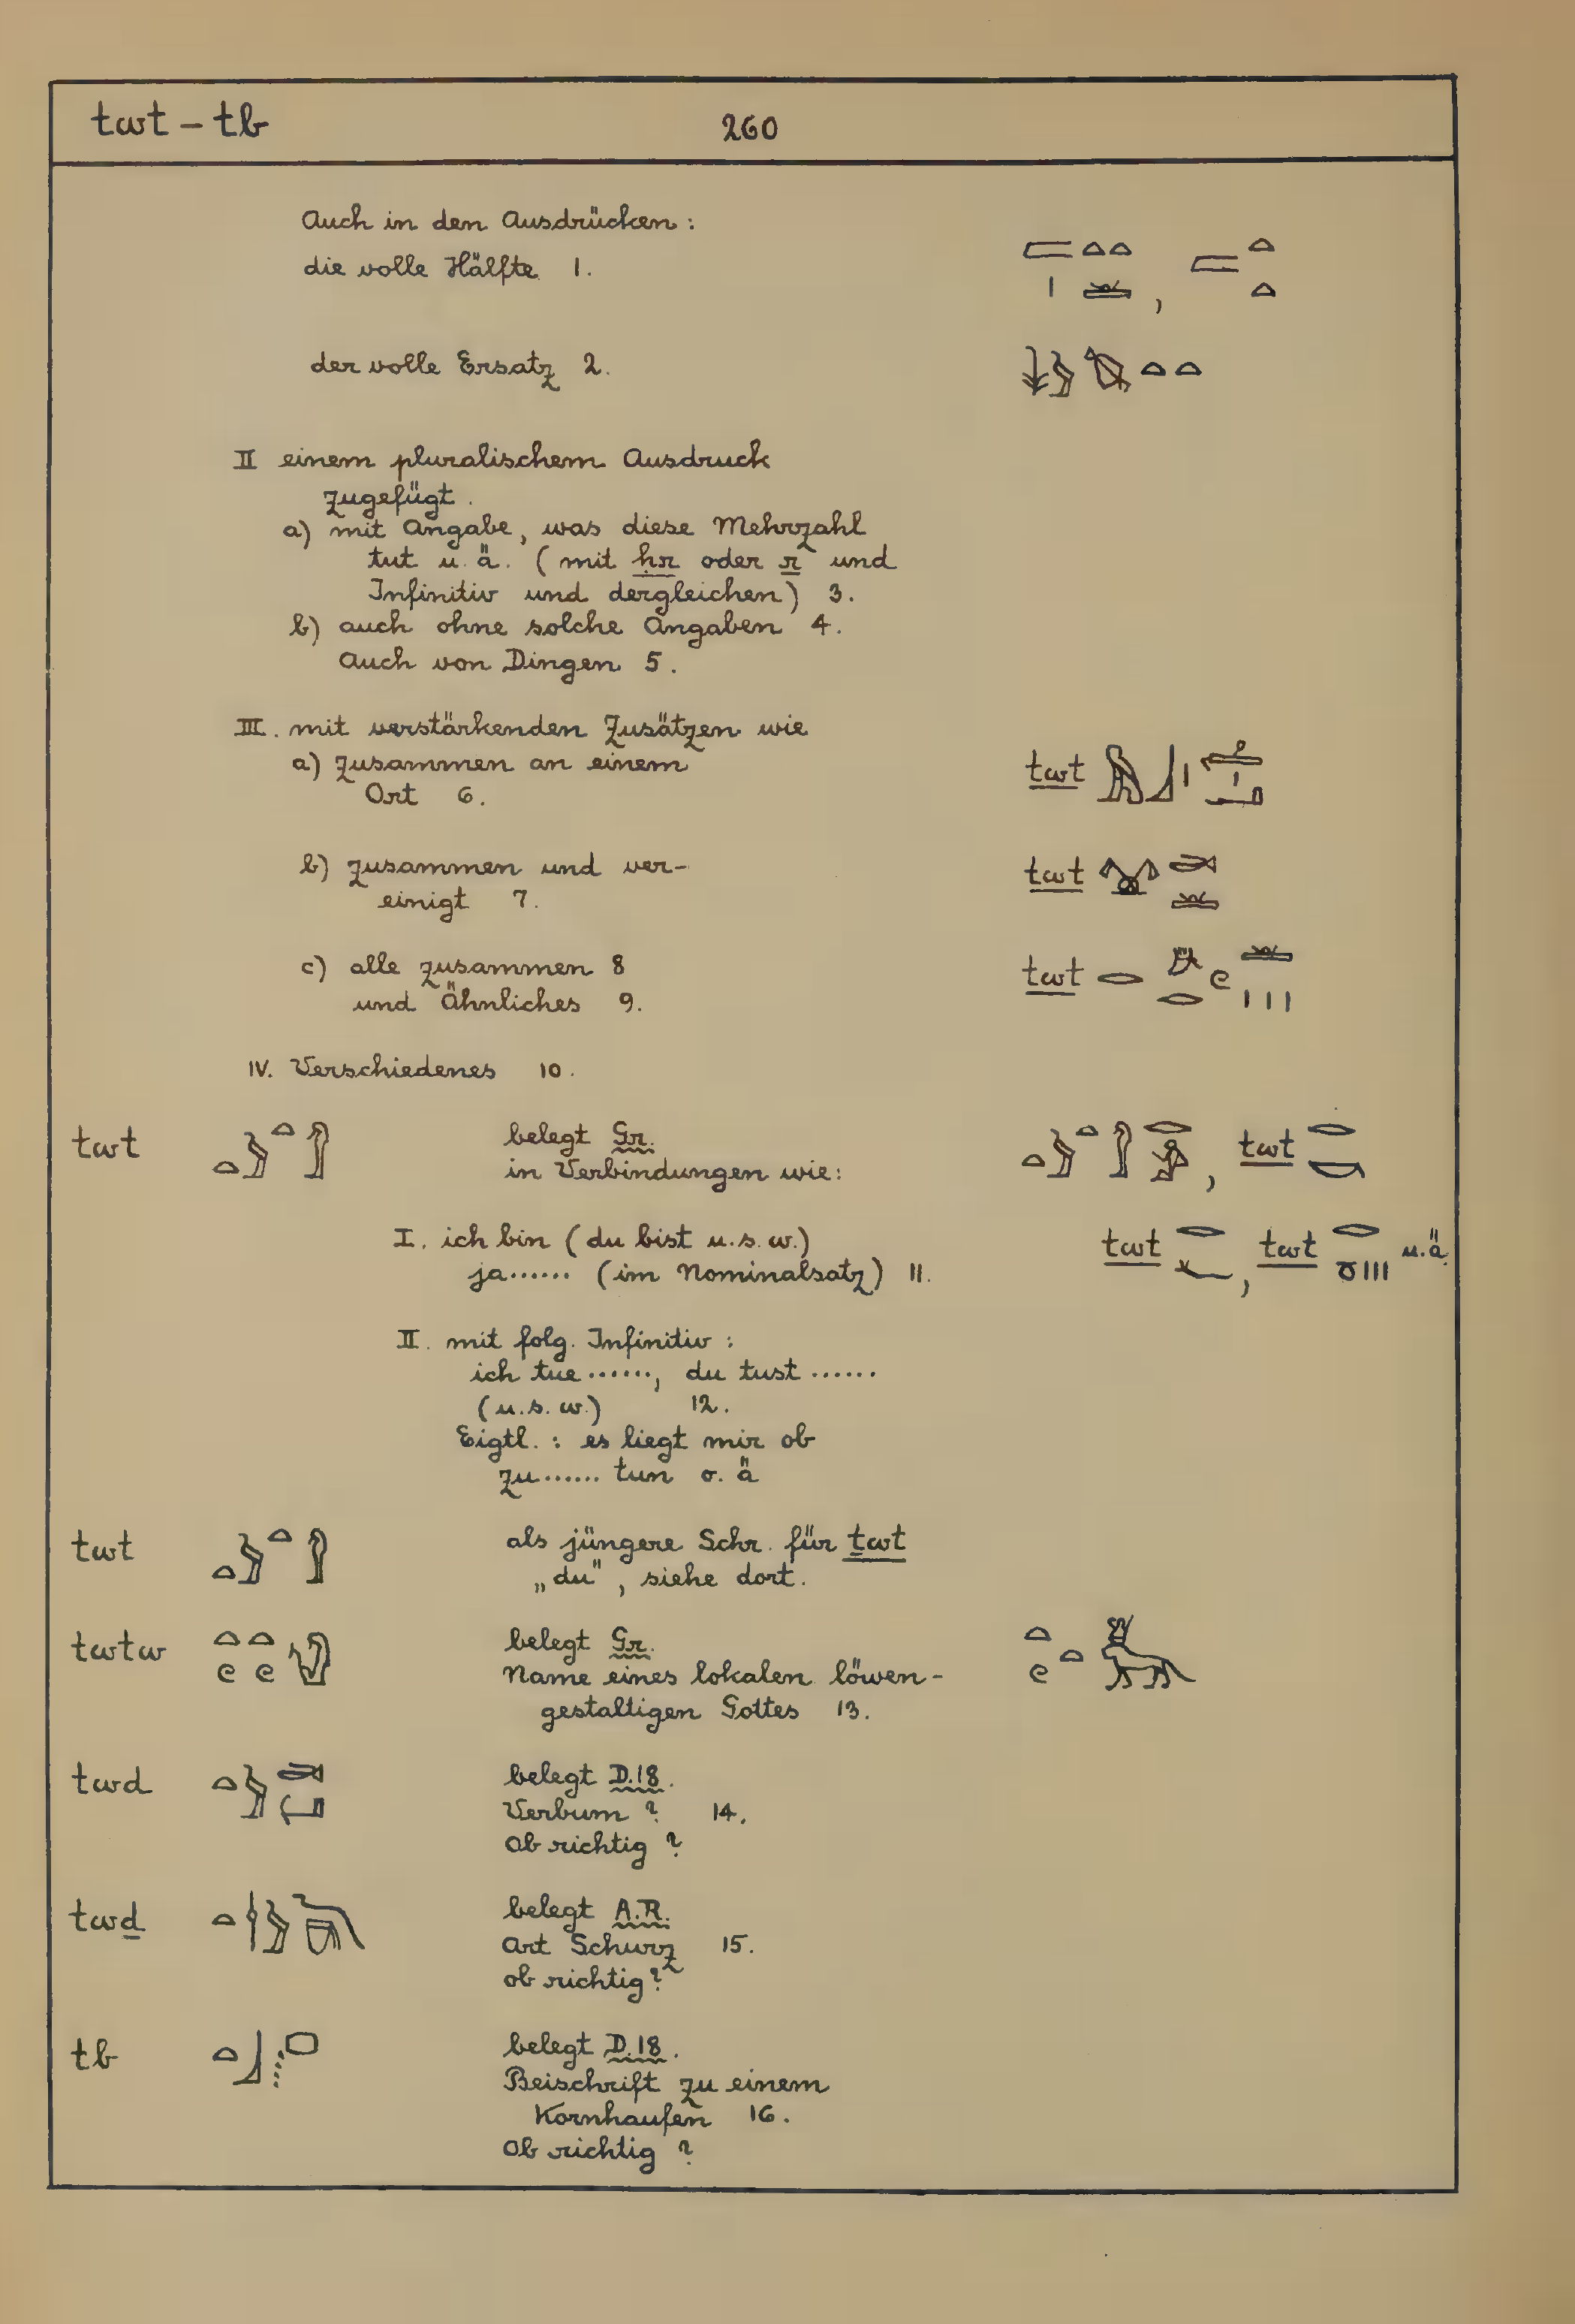 twt – tb 260
Auch in den Ausdrücken :
die volle Hälfte 1.
der volle Ersatz 2.
II einem pluralischem Ausdruck
zugefügt .
a) mit Angabe, was diese Mehrzahl
tut u. ä. ( mit ḥr oder r und
Infinitiv und dergleichen) 3.
b) auch ohne solche Angaben 4.
Auch von Dingen 5.
III. mit verstärkenden Zusätzen wie
a) zusammen an einem twt
Ort 6.
b) zusammen und ver- twt
einigt 7.
c) alle zusammen 8 twt
und Ähnliches 9.
IV. Verschiedenes 10.
twt belegt Gr.
in Verbindungen wie: , twt
I. ich bin ( du bist u.s.w.) twt , twt u.ä.
ja...... (im Nominalsatz) 11.
II. mit folg. Infinitiv :
ich tue ......, du tust ......
(u.s.w.) 12.
Eigtl. : es liegt mir ob
zu...... tun o. ä
twt als jüngere Schr. für ṯwt
„du", siehe dort.
twtw belegt Gr.
Name eines lokalen löwen-
gestaltigen Gottes 13.
twd belegt D.18.
Verbum ? 14.
Ob richtig ?
twḏ belegt A.R.
Art Schurz 15.
ob richtig ?
tb belegt D.18.
Beischrift zu einem
Kornhaufen 16.
Ob richtig ?